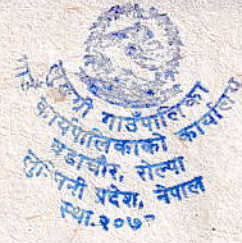 गाउँपालिका
कार्यपालिकाको कार्यालय
रोल्पा
लुम्बिनी प्रदेश, नेपाल
स्था.२०७